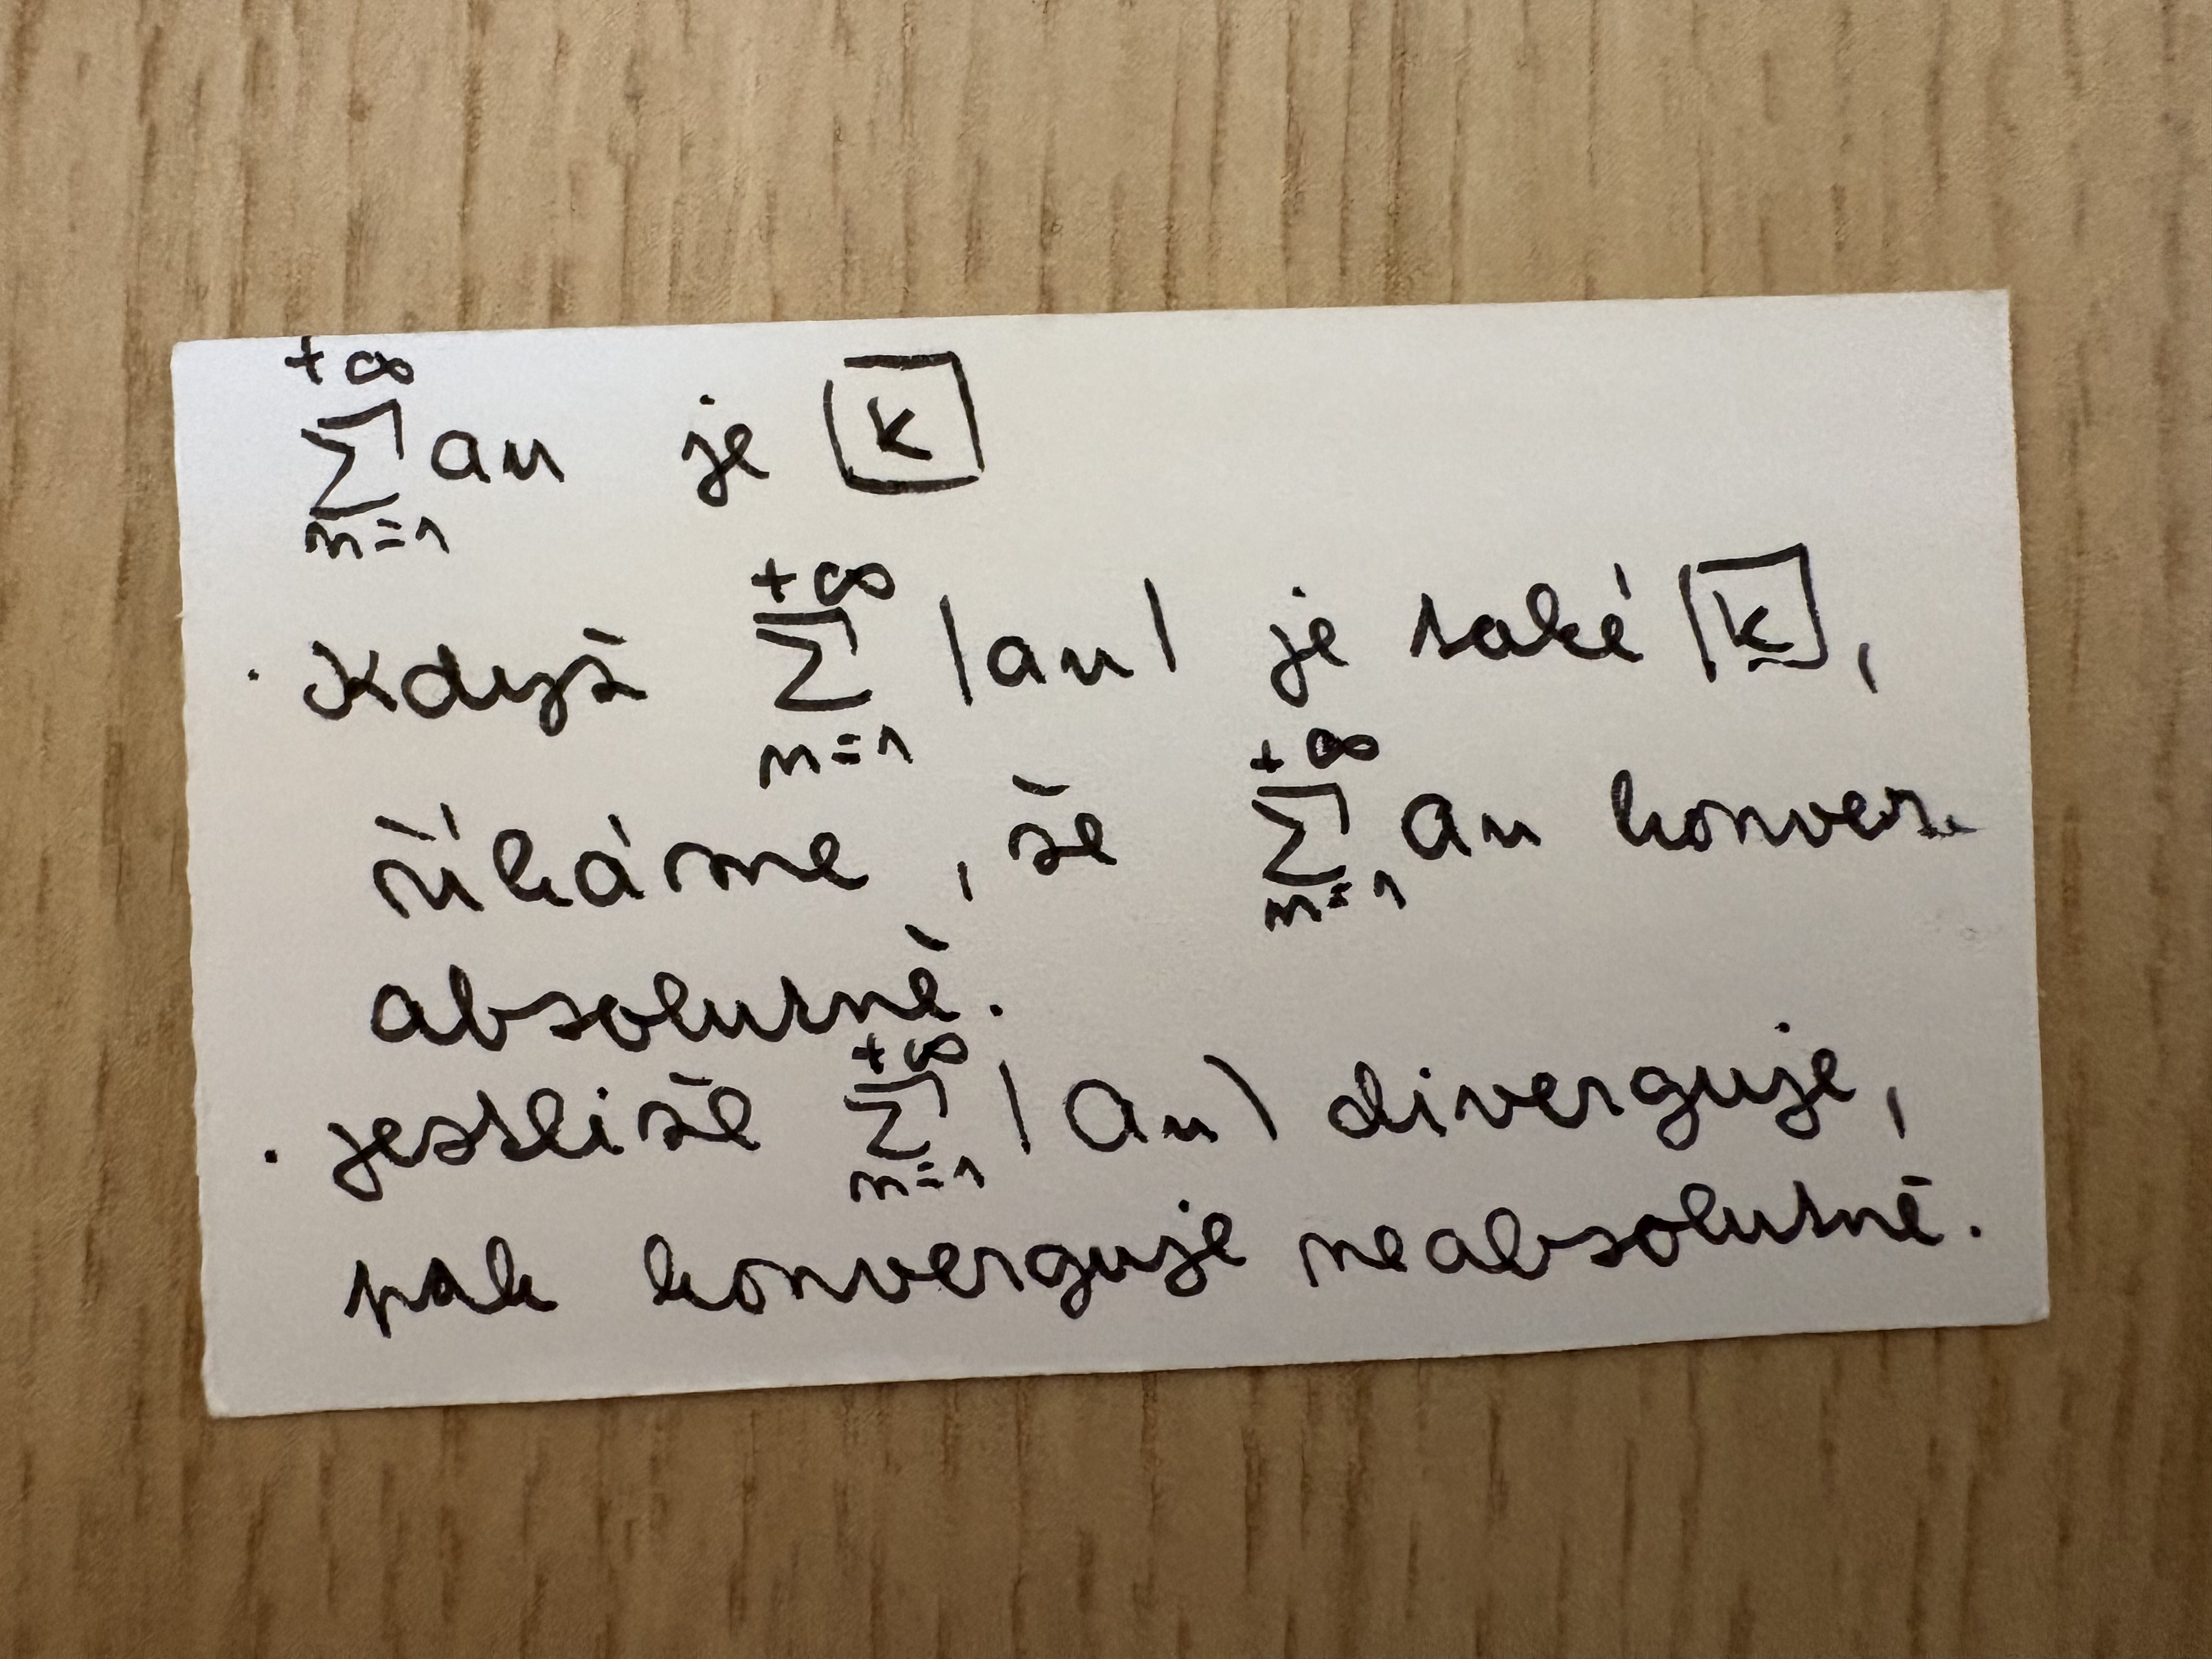 +∞
∑ an je K
n=1
· Když +∞ ∑ n=1 |an| je také K,
říkáme, že +∞ ∑ n=1 an konver.
absolutně.
· jestliže +∞ ∑ n=1 |an| diverguje,
pak konverguje neabsolutně.